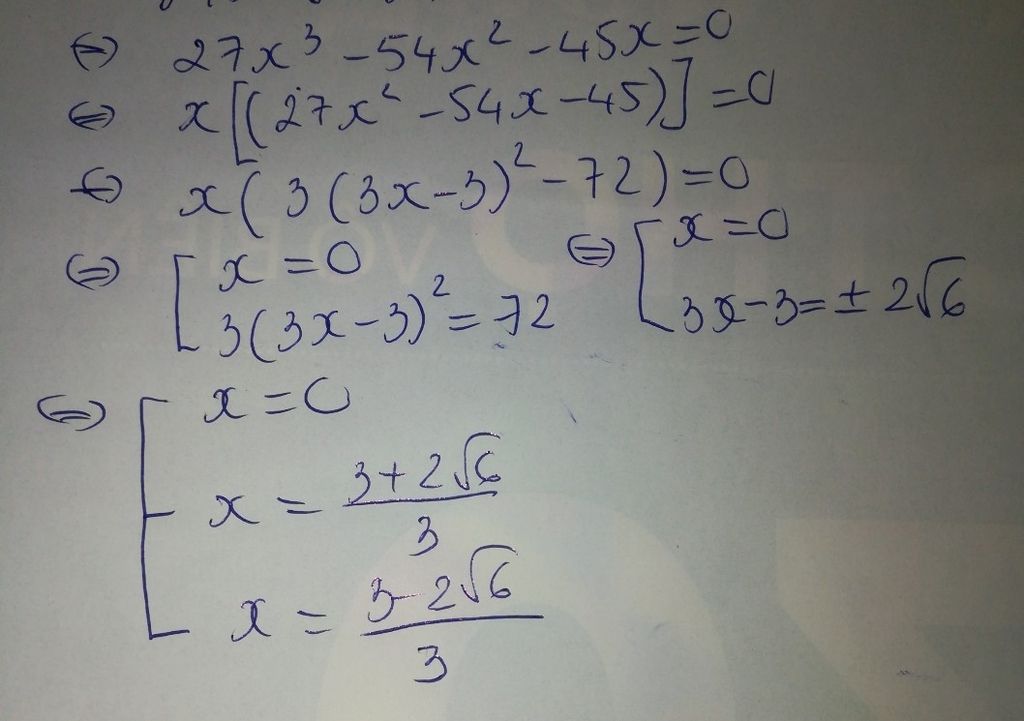 ⇔ 27x³ - 54x² - 45x = 0
⇔ x[(27x² - 54x - 45)] = 0
⇔ x(3(3x - 3)² - 72) = 0
⇔ [ x = 0
3(3x - 3)² = 72
⇔ [ x = 0
3x - 3 = ± 2√6
⇔ [ x = 0
x = (3 + 2√6)/3
x = (3 - 2√6)/3